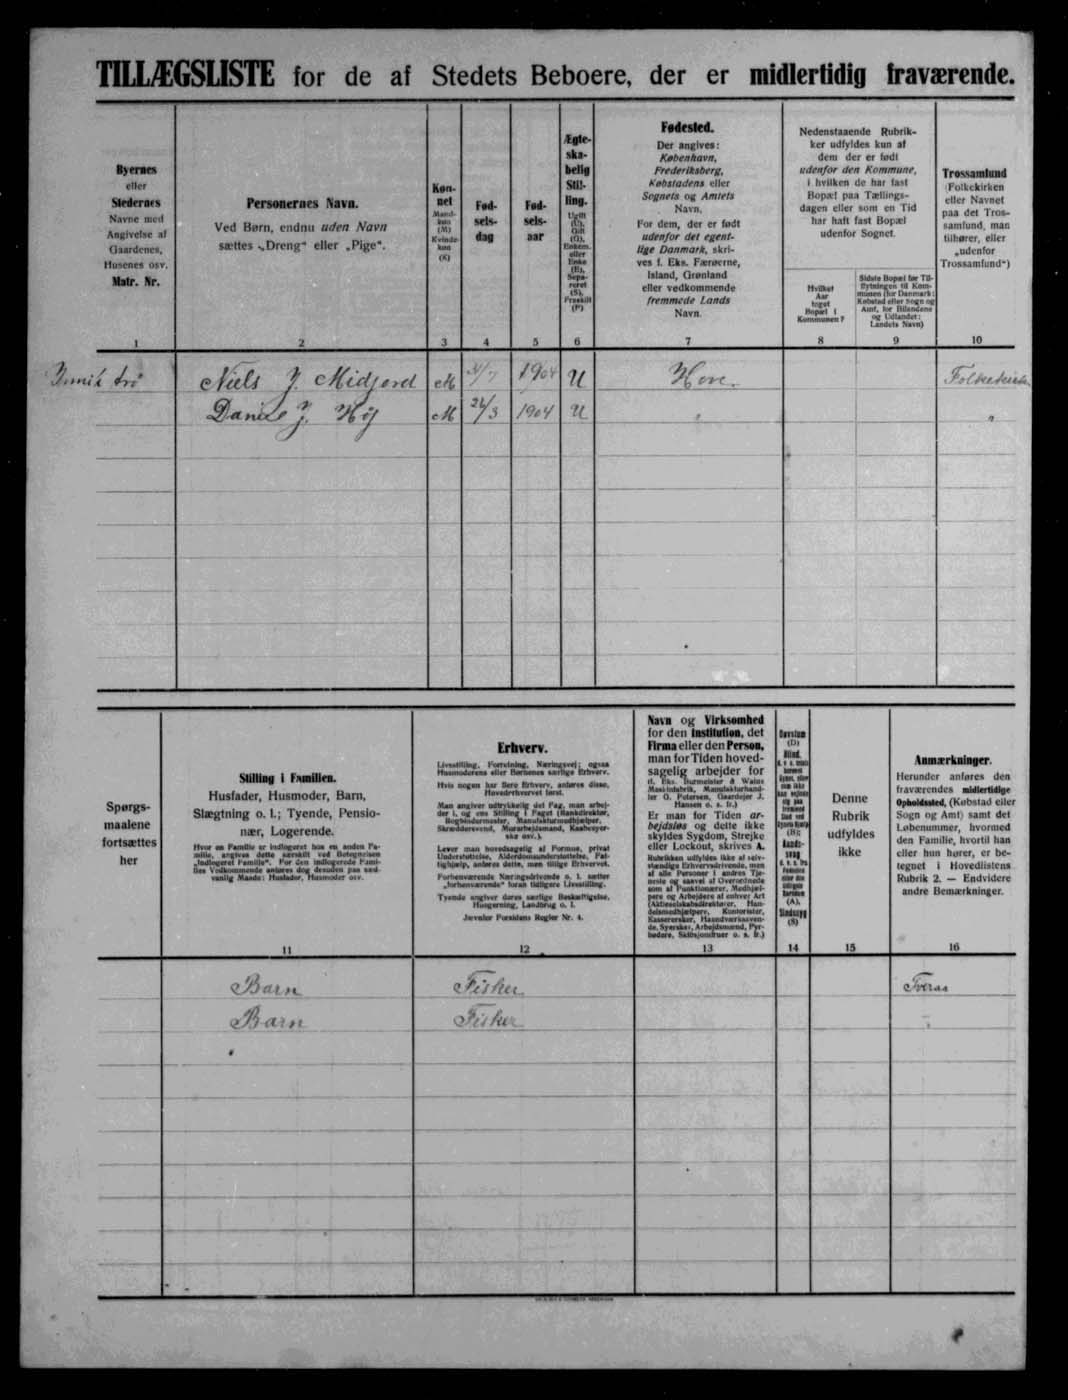 TILLÆGSLISTE for de af Stedets Beboere, der er midlertidig fraværende.
Byernes
eller
Stedernes
Navne med
Angivelse af
Gaardenes,
Husenes osv.
Matr. Nr.
1
Personernes Navn.
Ved Børn, endnu uden Navn
sættes „Dreng“ eller „Pige“.
2
Køn-
net
Mand-
køn
(M)
Kvinde-
køn
(K)
3
Fød-
sels-
dag
4
Fød-
sels-
aar
5
Ægte-
ska-
belig
Stil-
ling.
Ugift
(U),
Gift
(G),
Enkem.
eller
Enke
(E),
Sepa-
reret
(S),
Fraskilt
(F)
6
Fødested.
Der angives:
København,
Frederiksberg,
Købstadens eller
Sognets og Amtets
Navn.
For dem, der er født
udenfor det egent-
lige Danmark, skri-
ves f. Eks. Færøerne,
Island, Grønland
eller vedkommende
fremmede Lands
Navn.
7
Nedenstaaende Rubrik-
ker udfyldes kun af
dem der er født
udenfor den Kommune,
i hvilken de har fast
Bopæl paa Tællings-
dagen eller som en Tid
har haft fast Bopæl
udenfor Sognet.
Hvilket
Aar
toget
Bopæl i
Kommunen?
8
Sidste Bopæl før Til-
flytningen til Kom-
munen (for Danmark:
Købstad eller Sogn og
Amt, for Bilandene
og Udlandet:
Landets Navn)
9
Trossamfund
(Folkekirken
eller Navnet
paa det Tros-
samfund, man
tilhører, eller
„udenfor
Trossamfund“)
10
Niels J. Midjord M 1904 U Hove. Folkekirken
J. Høj M 26/3 1904 U " "
Spørgs-
maalene
fortsættes
her
Stilling i Familien.
Husfader, Husmoder, Barn,
Slægtning o. l.; Tyende, Pensio-
nær, Logerende.
Hvor en Familie er indlogeret hos en anden Fa-
milie, angives dette særskilt ved Betegnelsen
„Indlogeret Familie“. For den indlogerede Fami-
lies Vedkommende anføres dog desuden paa sæd-
vanlig Maade: Husfader, Husmoder osv.
11
Erhverv.
Livsstilling, Forretning, Næringsvej; ogsaa
Husmoderens eller Børnenes særlige Erhverv.
Hvis nogen har flere Erhverv, anføres disse,
Hovederhvervet først.
Man angiver udtrykkelig det Fag, man arbej-
der i, og ens Stilling i Faget (Bankdirektør,
Bogbindermester, Manufakturmedhjælper,
Skræddersvend, Murarbejdsmand, Kaabesyer-
ske osv.).
Lever man hovedsagelig af Formue, privat
Understøttelse, Alderdomsunderstøttelse, Fat-
tighjælp, anføres dette, men tillige Erhvervet.
Forhenværende Næringsdrivende o. l. sætter
„forhenværende“ foran tidligere Livsstilling.
Tyende angiver deres særlige Beskæftigelse,
Husgerning, Landbrug o. l.
Jævnfør Forsidens Regler Nr. 4.
12
Navn og Virksomhed
for den Institution, det
Firma eller den Person,
man for Tiden hoved-
sagelig arbejder for
(f. Eks. Burmeister & Wains
Maskinfabrik, Manufakturhand-
ler O. Petersen, Gaardejer J.
Hansen o. s. fr.)
Er man for Tiden ar-
bejdsløs og dette ikke
skyldes Sygdom, Strejke
eller Lockout, skrives A.
Rubrikken udfyldes ikke af selv-
stændige Erhvervsdrivende, men
af alle Personer i andres Tje-
neste og saavel af Overordnede
som af Funktionærer, Medhjæl-
pere og Arbejdere af enhver Art
(Aktieselskabsdirektører, Han-
delsmedhjælpere, Kontorister,
Kasserersker, Haandværkssven-
de, Syersker, Arbejdsmænd, Fyr-
bødere, Skibsjomfruer o. s. fr.)
13
Døvstum
(D)
Blind,
14
Denne
Rubrik
udfyldes
ikke
15
Anmærkninger.
Herunder anføres den
fraværendes midlertidige
Opholdssted, (Købstad eller
Sogn og Amt) samt det
Løbenummer, hvormed
den Familie, hvortil han
eller hun hører, er be-
tegnet i Hovedlistens
Rubrik 2. — Endvidere
andre Bemærkninger.
16
Barn Fisker Tveraa
Barn Fisker